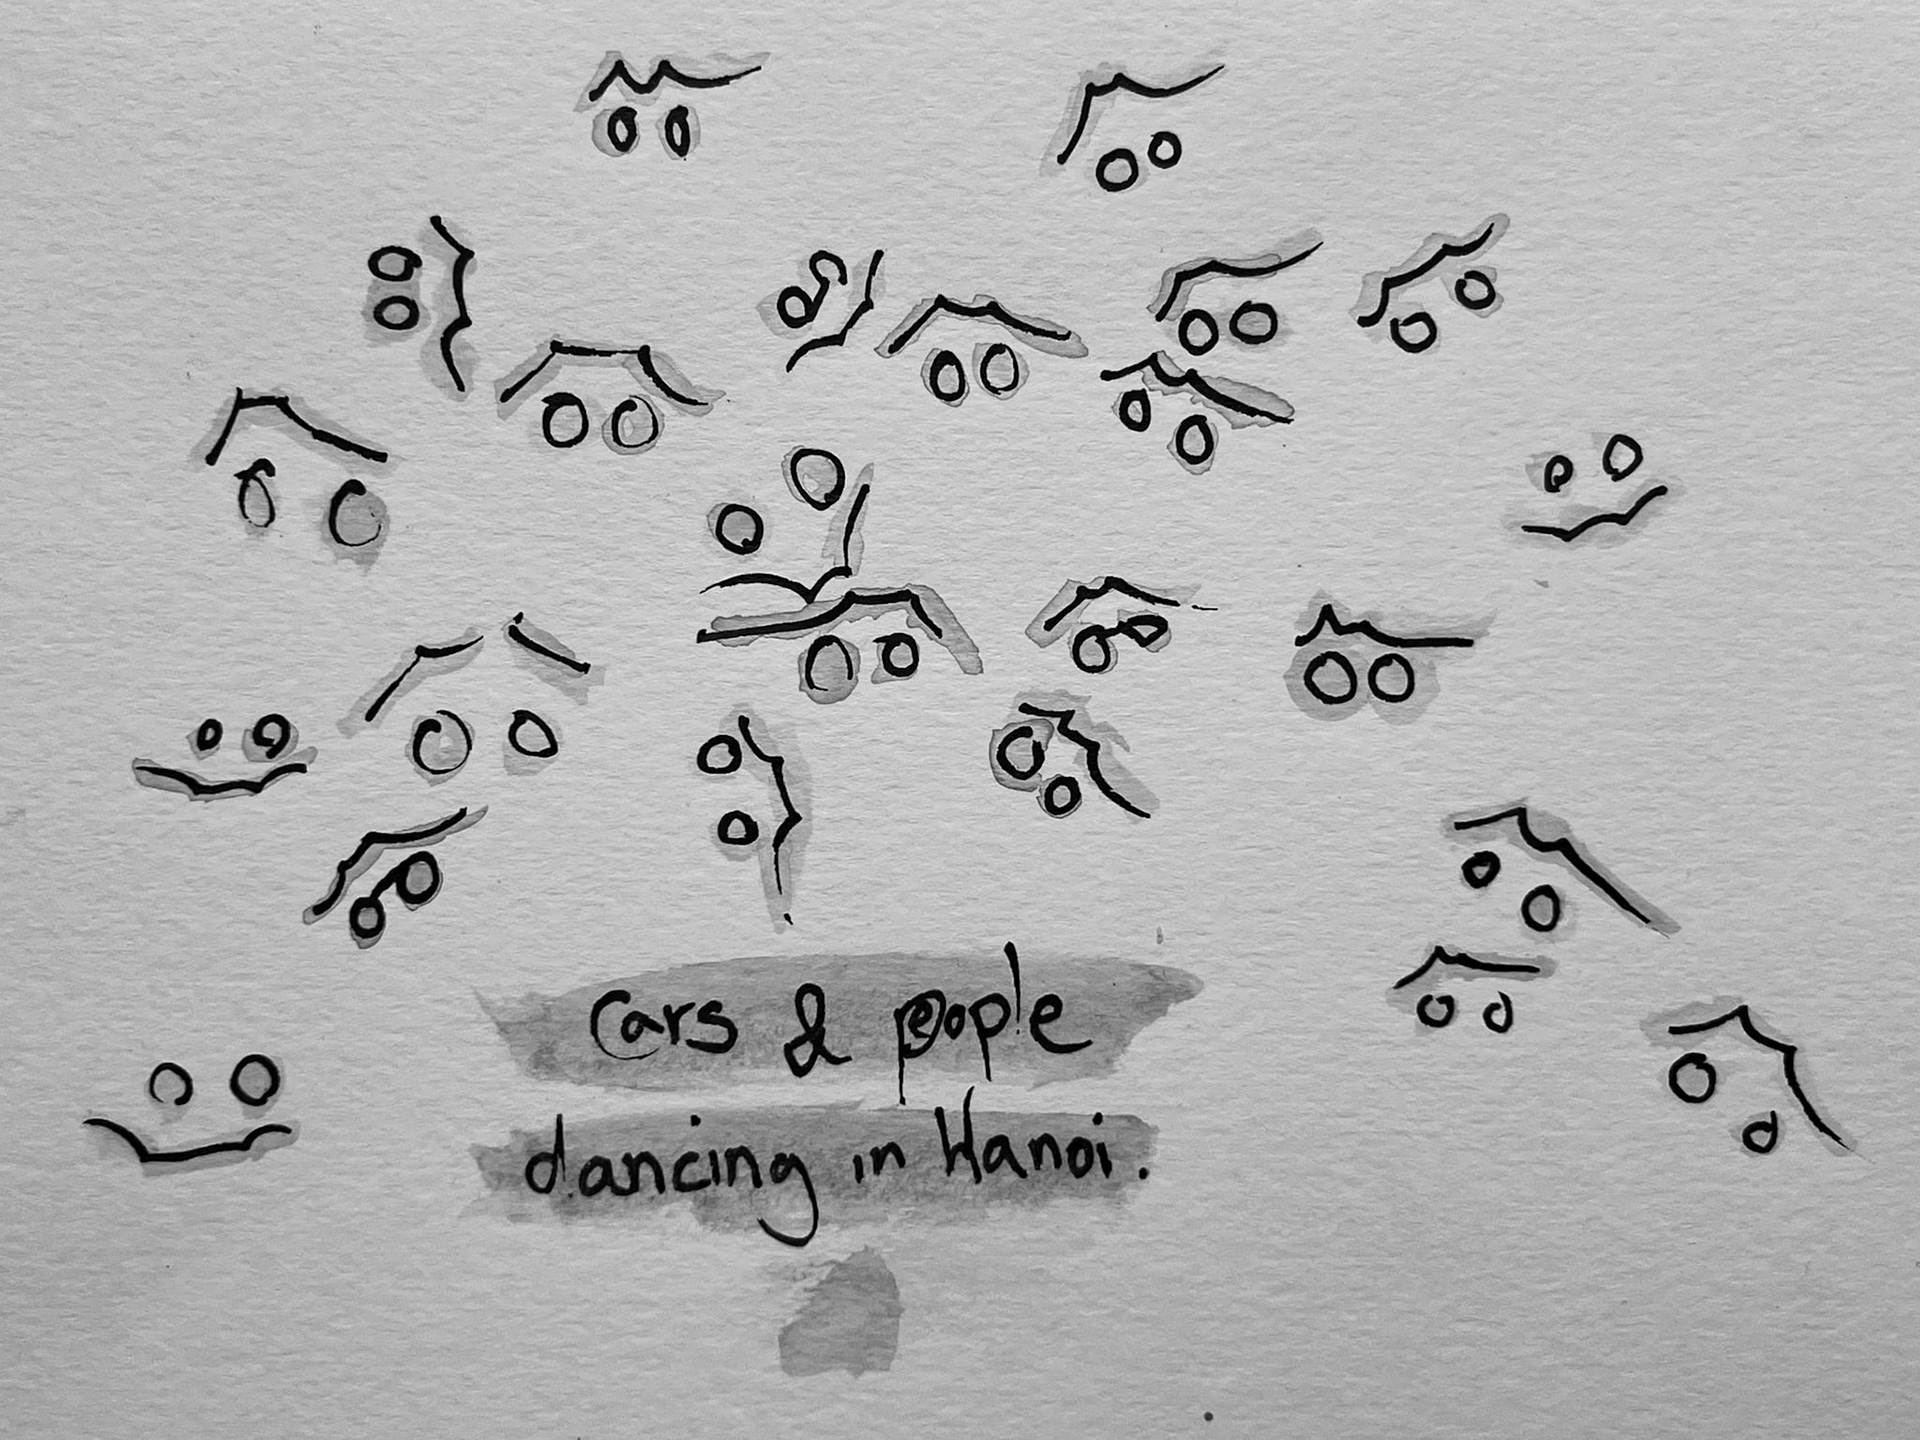 Cars & people
dancing in Hanoi.